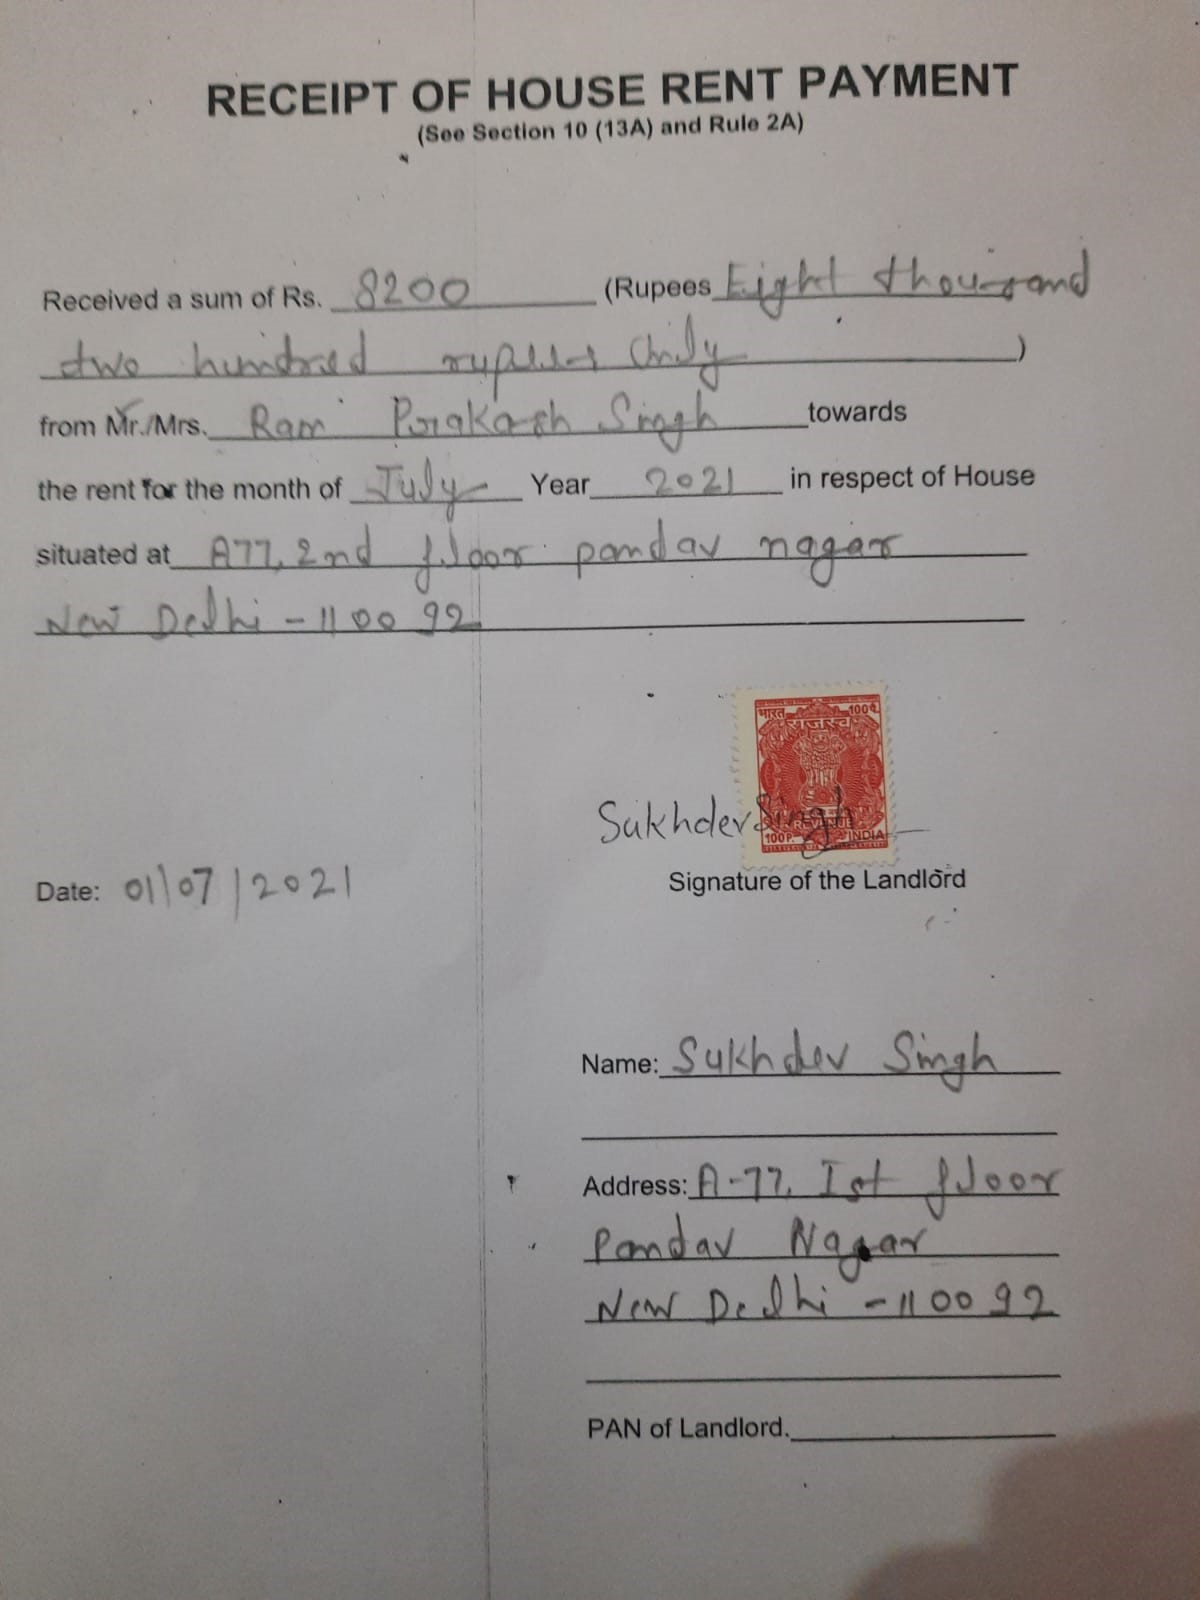 RECEIPT OF HOUSE RENT PAYMENT
(See Section 10 (13A) and Rule 2A)
Received a sum of Rs. 8200 (Rupees Eight thousand
two hundred rupees only )
from Mr./Mrs. Ram Prakash Singh towards
the rent for the month of July Year 2021 in respect of House
situated at A77, 2nd floor pandav nagar
New Delhi - 110092
भारत 100प.
राजस्व
Sukhdev Singh
REVENUE
100P. INDIA
Signature of the Landlord
Date: 01/07/2021
Name: Sukhdev Singh
Address: A-77, Ist floor
Pandav Nagar
New Delhi - 110092
PAN of Landlord.